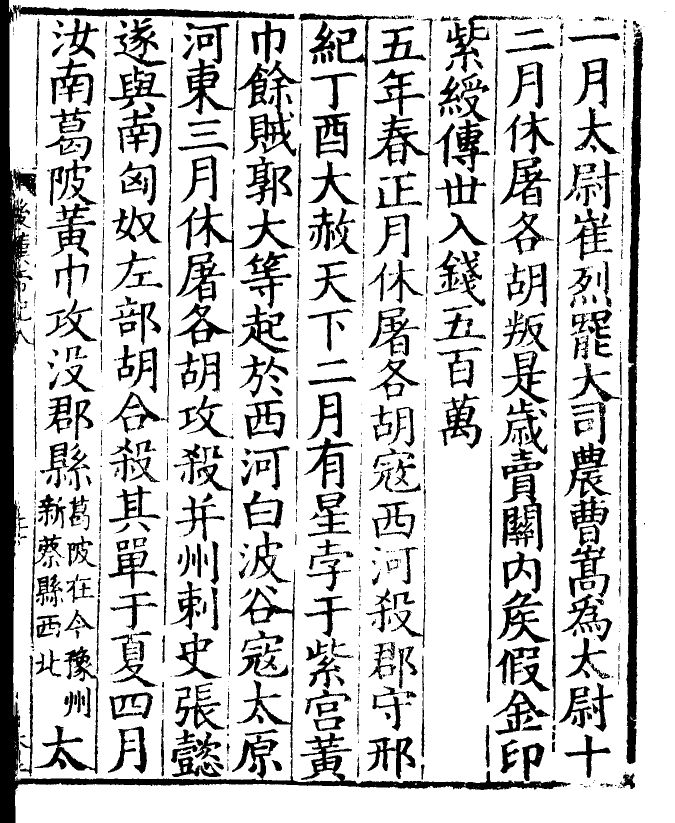 一月太尉崔烈罷大司農曹嵩爲太尉十
二月休屠各胡叛是歲賣關內侯假金印
紫綬傳世入錢五百萬
五年春正月休屠各胡寇西河殺郡守邢
紀丁酉大赦天下二月有星孛于紫宫黃
巾餘賊郭大等起於西河白波谷寇太原
河東三月休屠各胡攻殺并州刺史張懿
遂與南匈奴左部胡合殺其單于夏四月
汝南葛陂黃巾攻没郡縣葛陂在今豫州新蔡縣西北太